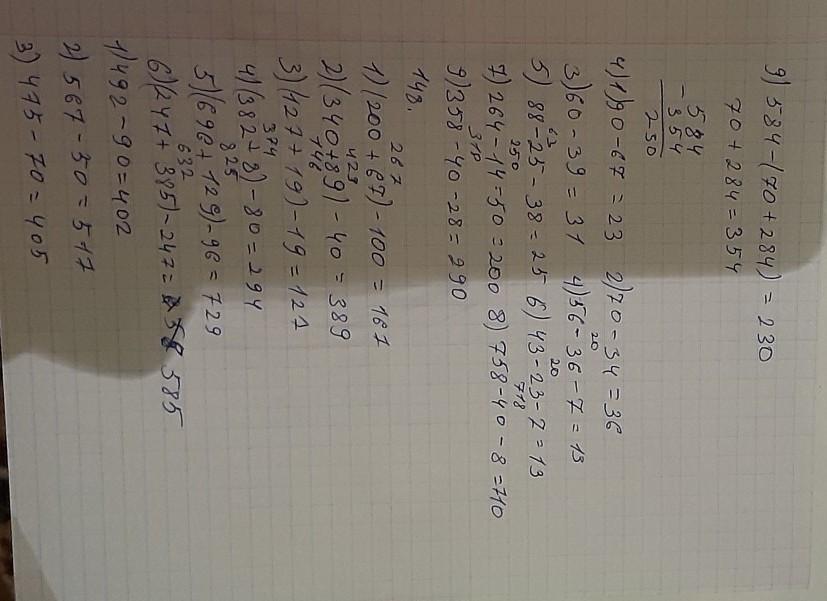 9) 584-(70+284) = 230
70+284=354
- 584
354
230
4)1)90-67=23 2)70-34=36
20
3)60-39=31 4)56-36-7=13
63 20
5) 88-25-38=25 6)43-23-7=13
250 718
7)264-14=50=200 8)758-40-8=710
318
9)358-40-28=290
148.
267
1)(200+67)-100=167
429
2)(340+89)-40=389
146
3)(127+19)-19=127
374
4)(382+8)-80=294
825
5)(696+129)-96=729
632
6)(247+385)-247= 585
1)492-90=402
2)567-50=517
3)475-70=405